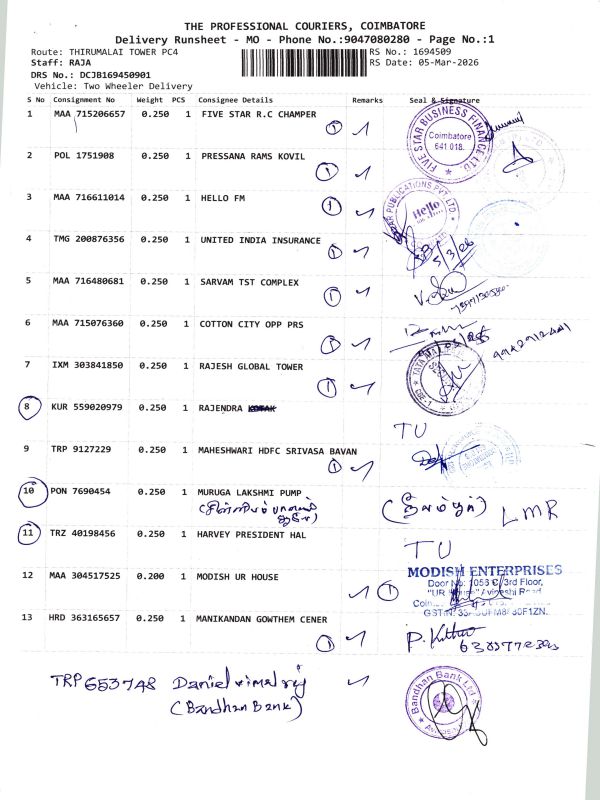 THE PROFESSIONAL COURIERS, COIMBATORE
Delivery Runsheet - MO - Phone No.:9047080280 - Page No.:1
Route: THIRUMALAI TOWER PC4
RS No.: 1694509
Staff: RAJA
RS Date: 05-Mar-2026
DRS No.: DCJB169450901
Vehicle: Two Wheeler Delivery
S No Consignment No Weight PCS Consignee Details Remarks Seal & Signature
1 MAA 715206657 0.250 1 FIVE STAR R.C CHAMPER 1
FIVE STAR BUSINESS FINANCE LTD
Coimbatore
641 018.
2 POL 1751908 0.250 1 PRESSANA RAMS KOVIL 1
3 MAA 716611014 0.250 1 HELLO FM 1
PUBLICATIONS PVT LTD
Hello
4 TMG 200876356 0.250 1 UNITED INDIA INSURANCE 1
5/3/26
5 MAA 716480681 0.250 1 SARVAM TST COMPLEX 1
6 MAA 715076360 0.250 1 COTTON CITY OPP PRS 1
7 IXM 303841850 0.250 1 RAJESH GLOBAL TOWER 1
8 KUR 559020979 0.250 1 RAJENDRA
TU
9 TRP 9127229 0.250 1 MAHESHWARI HDFC SRIVASA BAVAN 1
10 PON 7690454 0.250 1 MURUGA LAKSHMI PUMP
LMR
11 TRZ 40198456 0.250 1 HARVEY PRESIDENT HAL
TU
12 MAA 304517525 0.200 1 MODISH UR HOUSE 1
MODISH ENTERPRISES
Door No: 1056 C/3rd Floor,
"UR House" Avinashi Road
13 HRD 363165657 0.250 1 MANIKANDAN GOWTHEM CENER 1
TRP 653748 Danielvimalraj
(Bandhan Bank)
Bandhan Bank Ltd